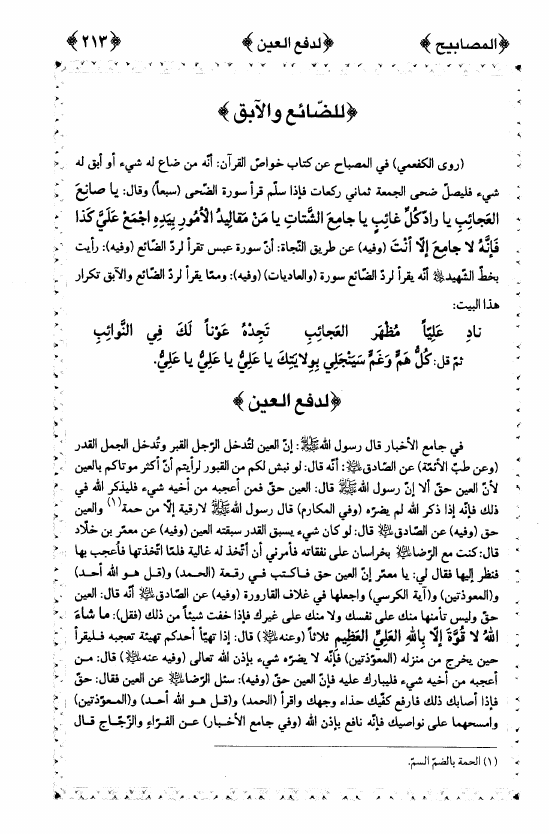 ﴿المصابيح﴾ ﴿لدفع العين﴾ ﴿٢١٣﴾
﴿للضّائع والآبق﴾
(روى الكفعمي) في المصباح عن كتاب خواصّ القرآن: أنّه من ضاع له شيء أو أبق له
شيء فليصلّ ضحى الجمعة ثماني ركعات فإذا سلّم قرأ سورة الضّحى (سبعاً) وقال: يا صانِعَ
العَجائِبِ يا رادَّ كُلِّ غائِبٍ يا جامِعَ الشَّتاتِ يا مَنْ مَقاليدُ الأُمُورِ بِيَدِهِ اجْمَعْ عَلَيَّ كَذا
فَإنَّهُ لا جامِعَ إلّا أنْتَ (وفيه) عن طريق النّجاة: أنّ سورة عبس تقرأ لردّ الضّائع (وفيه): رأيت
بخطّ الشّهيد ﷺ أنّه يقرأ لردّ الضّائع سورة (والعاديات) (وفيه): وممّا يقرأ لردّ الضّائع والآبق تكرار
هذا البيت:
نادِ عَلِيّاً مُظْهَرَ العَجائِبِ تَجِدْهُ عَوْناً لَكَ فِي النَّوائِبِ
ثمّ قل: كُلُّ هَمٍّ وَغَمٍّ سَيَنْجَلِي بِوِلايَتِكَ يا عَلِيُّ يا عَلِيُّ يا عَلِيُّ.
﴿لدفع العين﴾
في جامع الأخبار قال رسول الله ﷺ: إنّ العين لتُدخل الرّجل القبر وتُدخل الجمل القدر
(وعن طبّ الأئمّة) عن الصّادق: أنّه قال: لو نبش لكم من القبور لرأيتم أنّ أكثر موتاكم بالعين
لأنّ العين حقّ ألا إنّ رسول الله ﷺ قال: العين حقّ فمن أعجبه من أخيه شيء فليذكر الله في
ذلك فإنّه إذا ذكر الله لم يضره (وفي المكارم) قال رسول الله ﷺ لا رقية إلّا من حمة(١) والعين
حق (وفيه) عن الصّادق قال: لو كان شيء يسبق القدر سبقته العين (وفيه) عن معمّر بن خلّاد
قال: كنت مع الرّضا بخراسان على نفقاته فأمرني أن أتّخذ له غالية فلمّا اتّخذتها فأعجب بها
فنظر إليها فقال لي: يا معمّر إنّ العين حق فاكتب في رقعة (الحمد) و(قل هو الله أحد)
و(المعوذتين) و(آية الكرسي) واجعلها في غلاف القارورة (وفيه) عن الصّادق أنّه قال: العين
حقّ وليس تأمنها منك على نفسك ولا منك على غيرك فإذا خفت شيئاً من ذلك (فقل): ما شاءَ
اللهُ لا قُوَّةَ إلّا بِاللهِ العَلِيِّ العَظِيمِ ثلاثاً (وعنه) قال: إذا تهيّأ أحدكم تهيئة تعجبه فليقرأ
حين يخرج من منزله (المعوّذتين) فإنّه لا يضره شيء بإذن الله تعالى (وفيه عنه) قال: من
أعجبه من أخيه شيء فليبارك عليه فإنّ العين حقّ (وفيه): سئل الرّضا عن العين فقال: حقّ
فإذا أصابك ذلك فارفع كفّيك حذاء وجهك واقرأ (الحمد) و(قل هو الله أحد) و(المعوذتين)
وامسحهما على نواصيك فإنّه نافع بإذن الله (وفي جامع الأخبار) عن الفرّاء والزّجّاج قال
(١) الحمة بالضمّ السمّ.